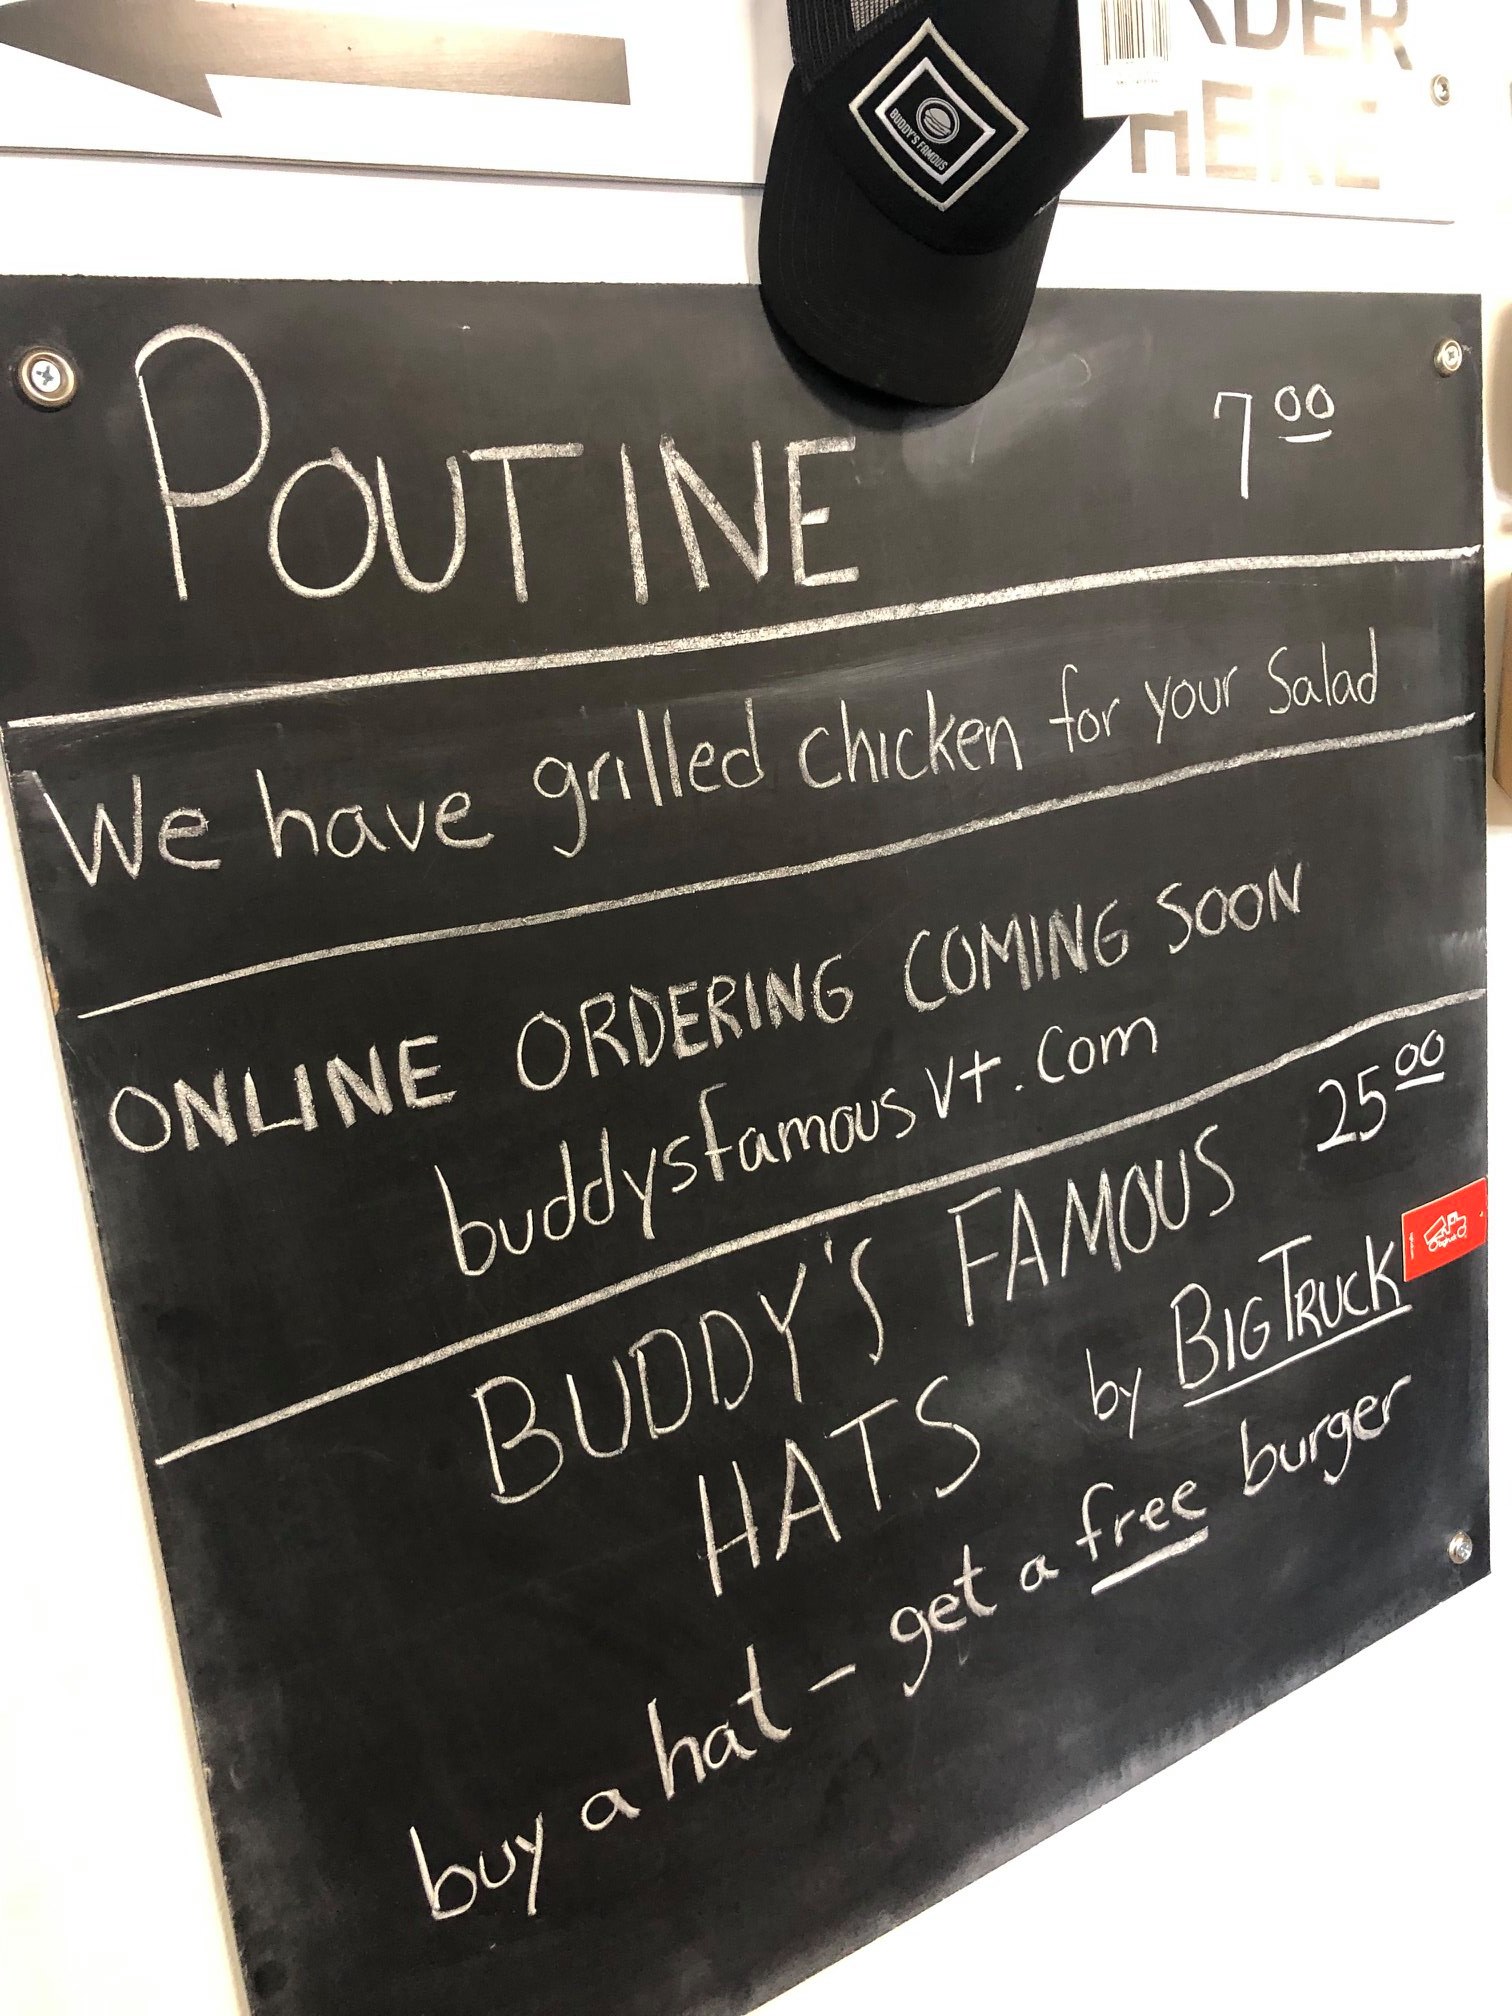 HERE
BUDDY'S FAMOUS
POUTINE 7.00
We have grilled chicken for your Salad
ONLINE ORDERING COMING SOON
buddysfamousvt.com
BUDDY'S FAMOUS 25.00
HATS by BIGTRUCK
buy a hat - get a free burger